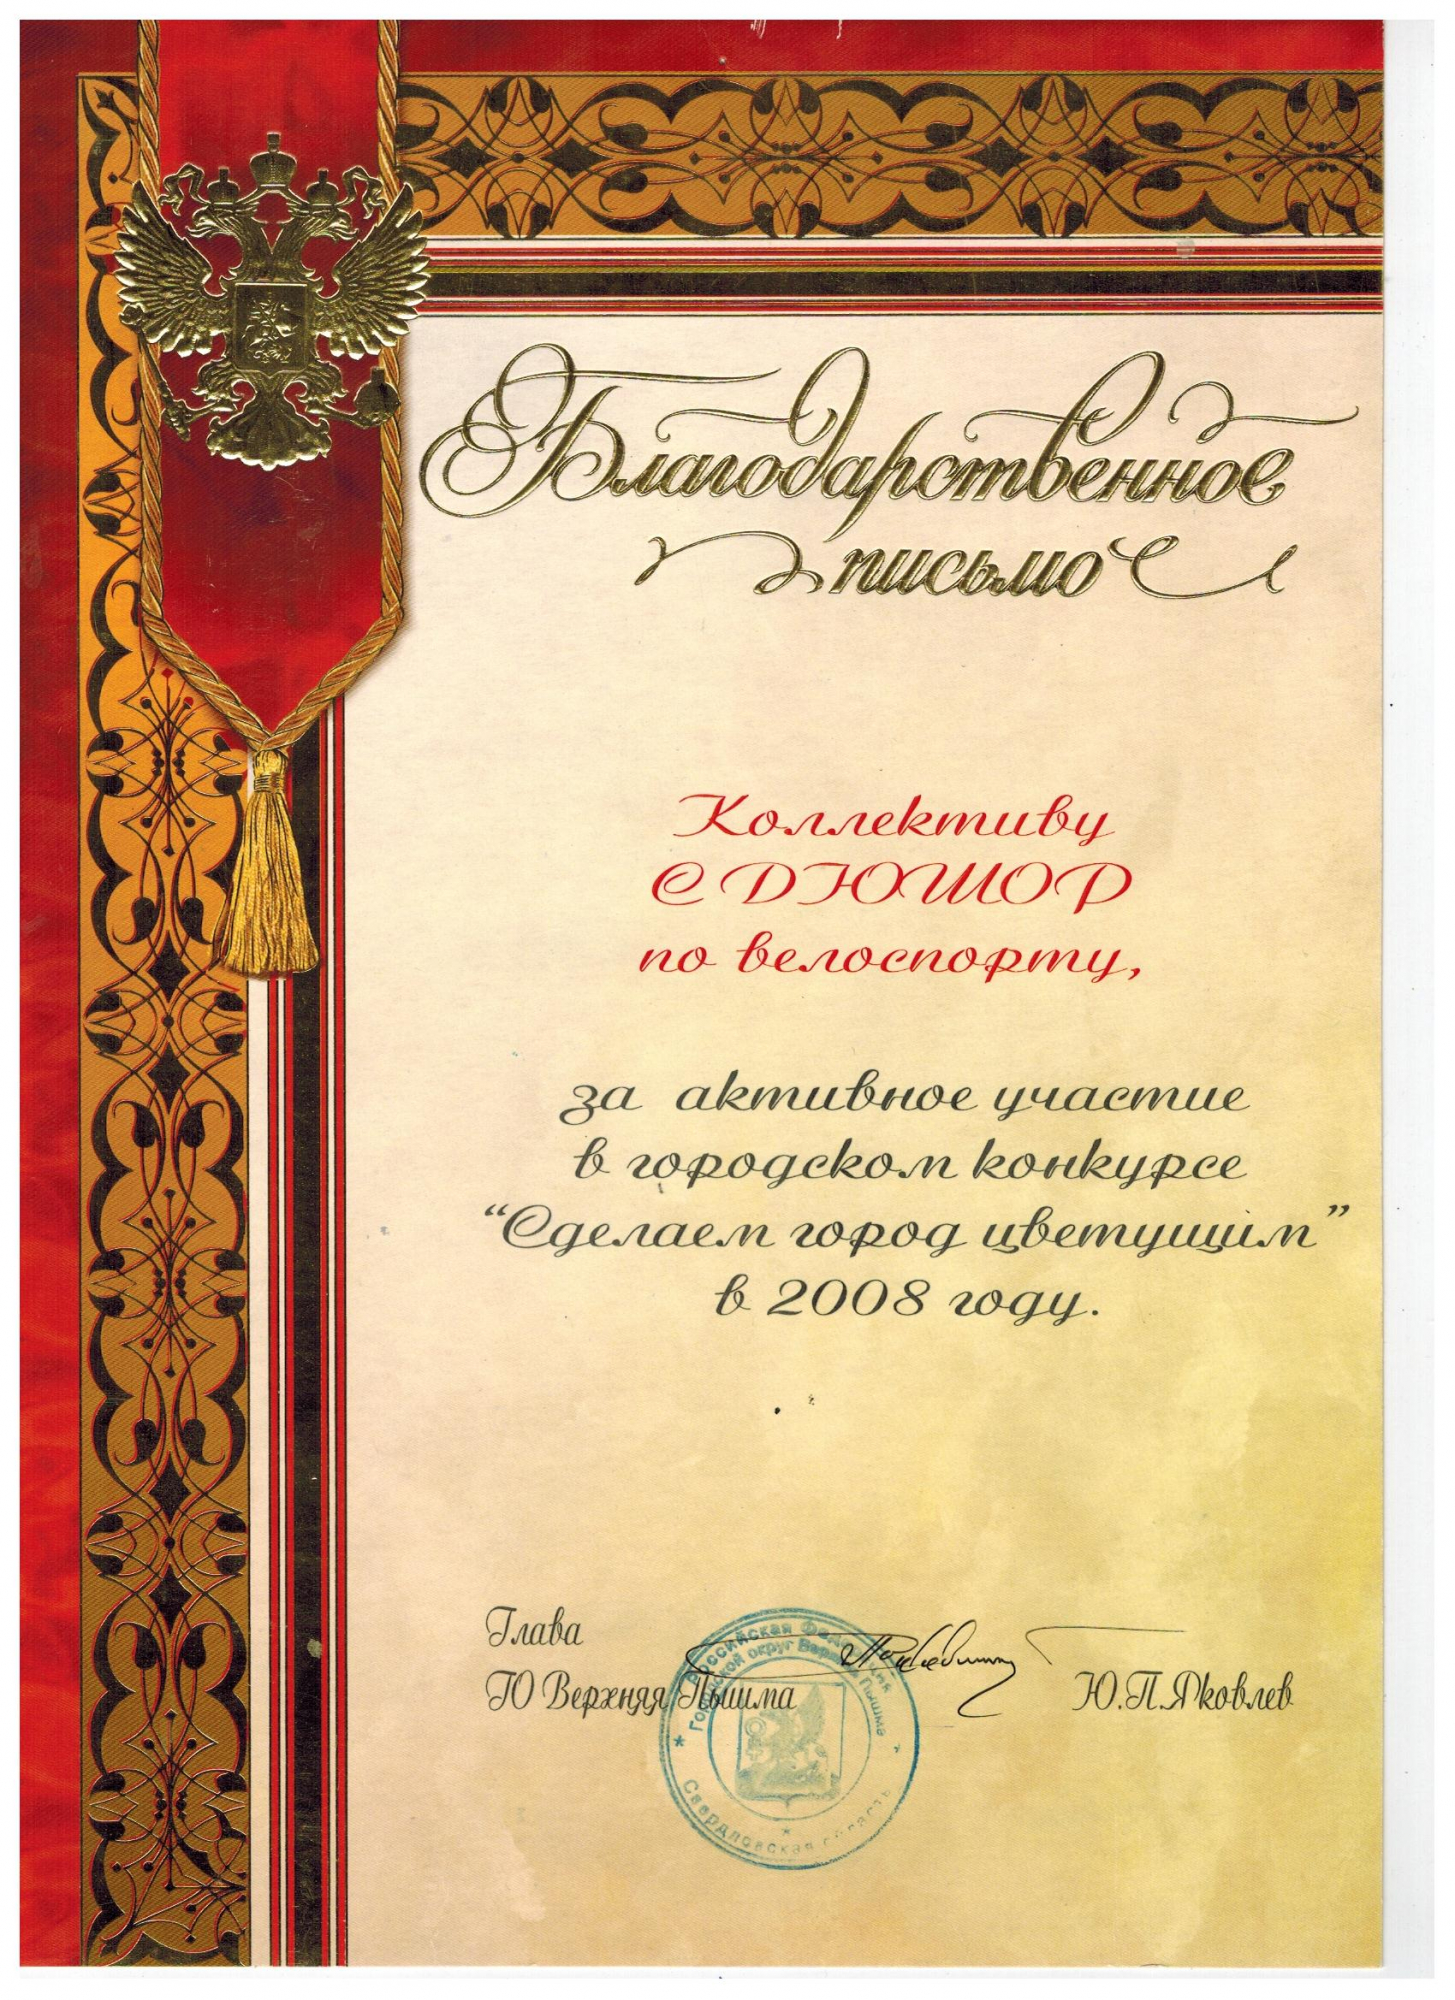 Благодарственное
письмо
Коллективу
СДЮШОР
по велоспорту,
за активное участие
в городском конкурсе
“Сделаем город цветущим”
в 2008 году.
Глава
ГО Верхняя Пышма
Ю.П.Яковлев
Российская Федерация
Городской округ Верхняя Пышма
Свердловская область